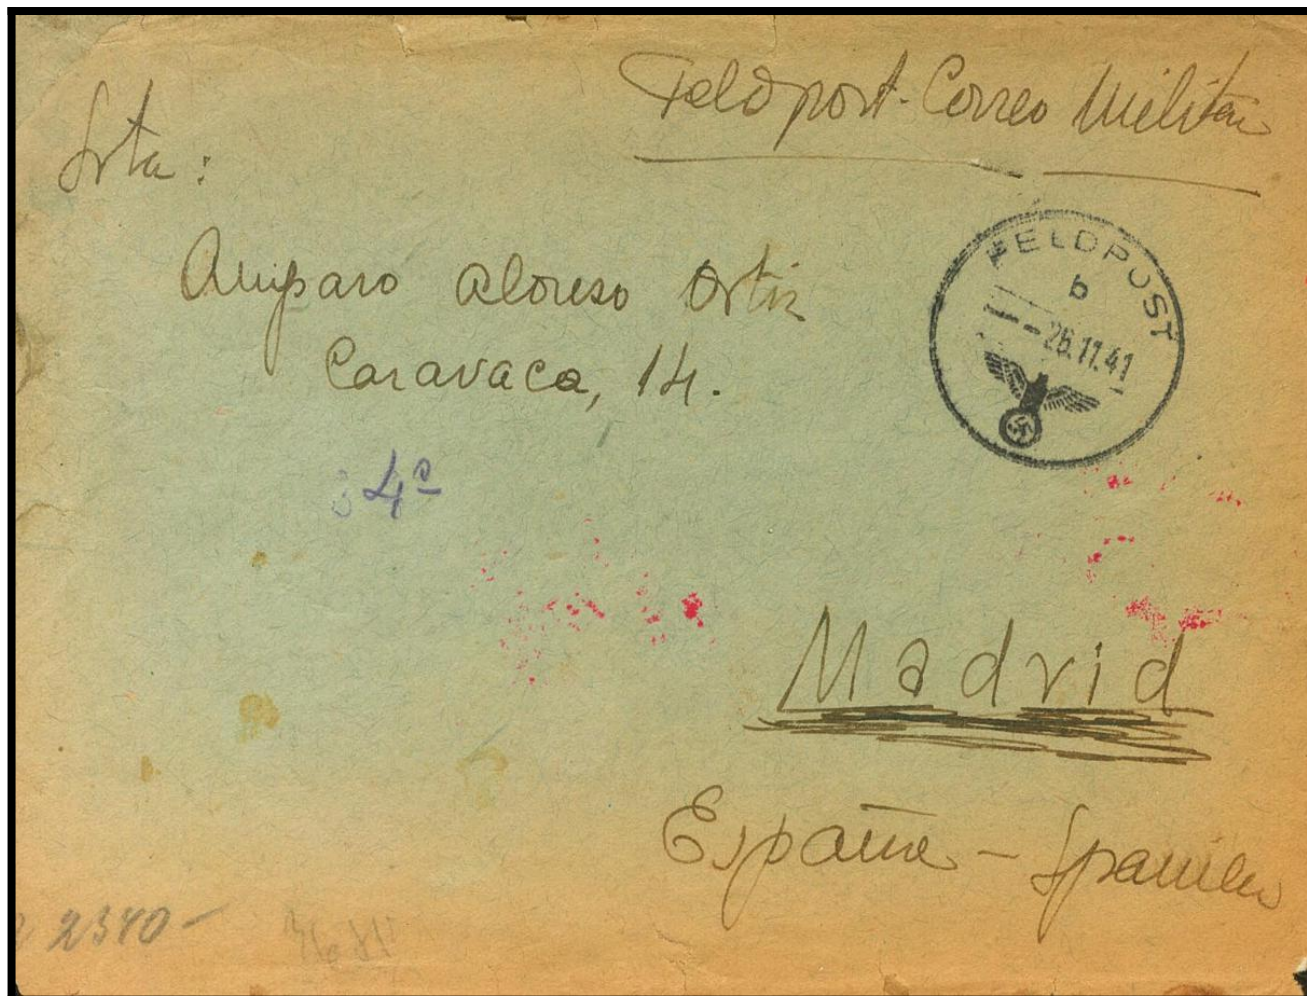 Feldpost-Correo Militar
Srta:
Amparo Alonso Ortiz
Caravaca, 14.
4º
FELDPOST
b
26.11.41
Madrid
España - Spanien
2340-